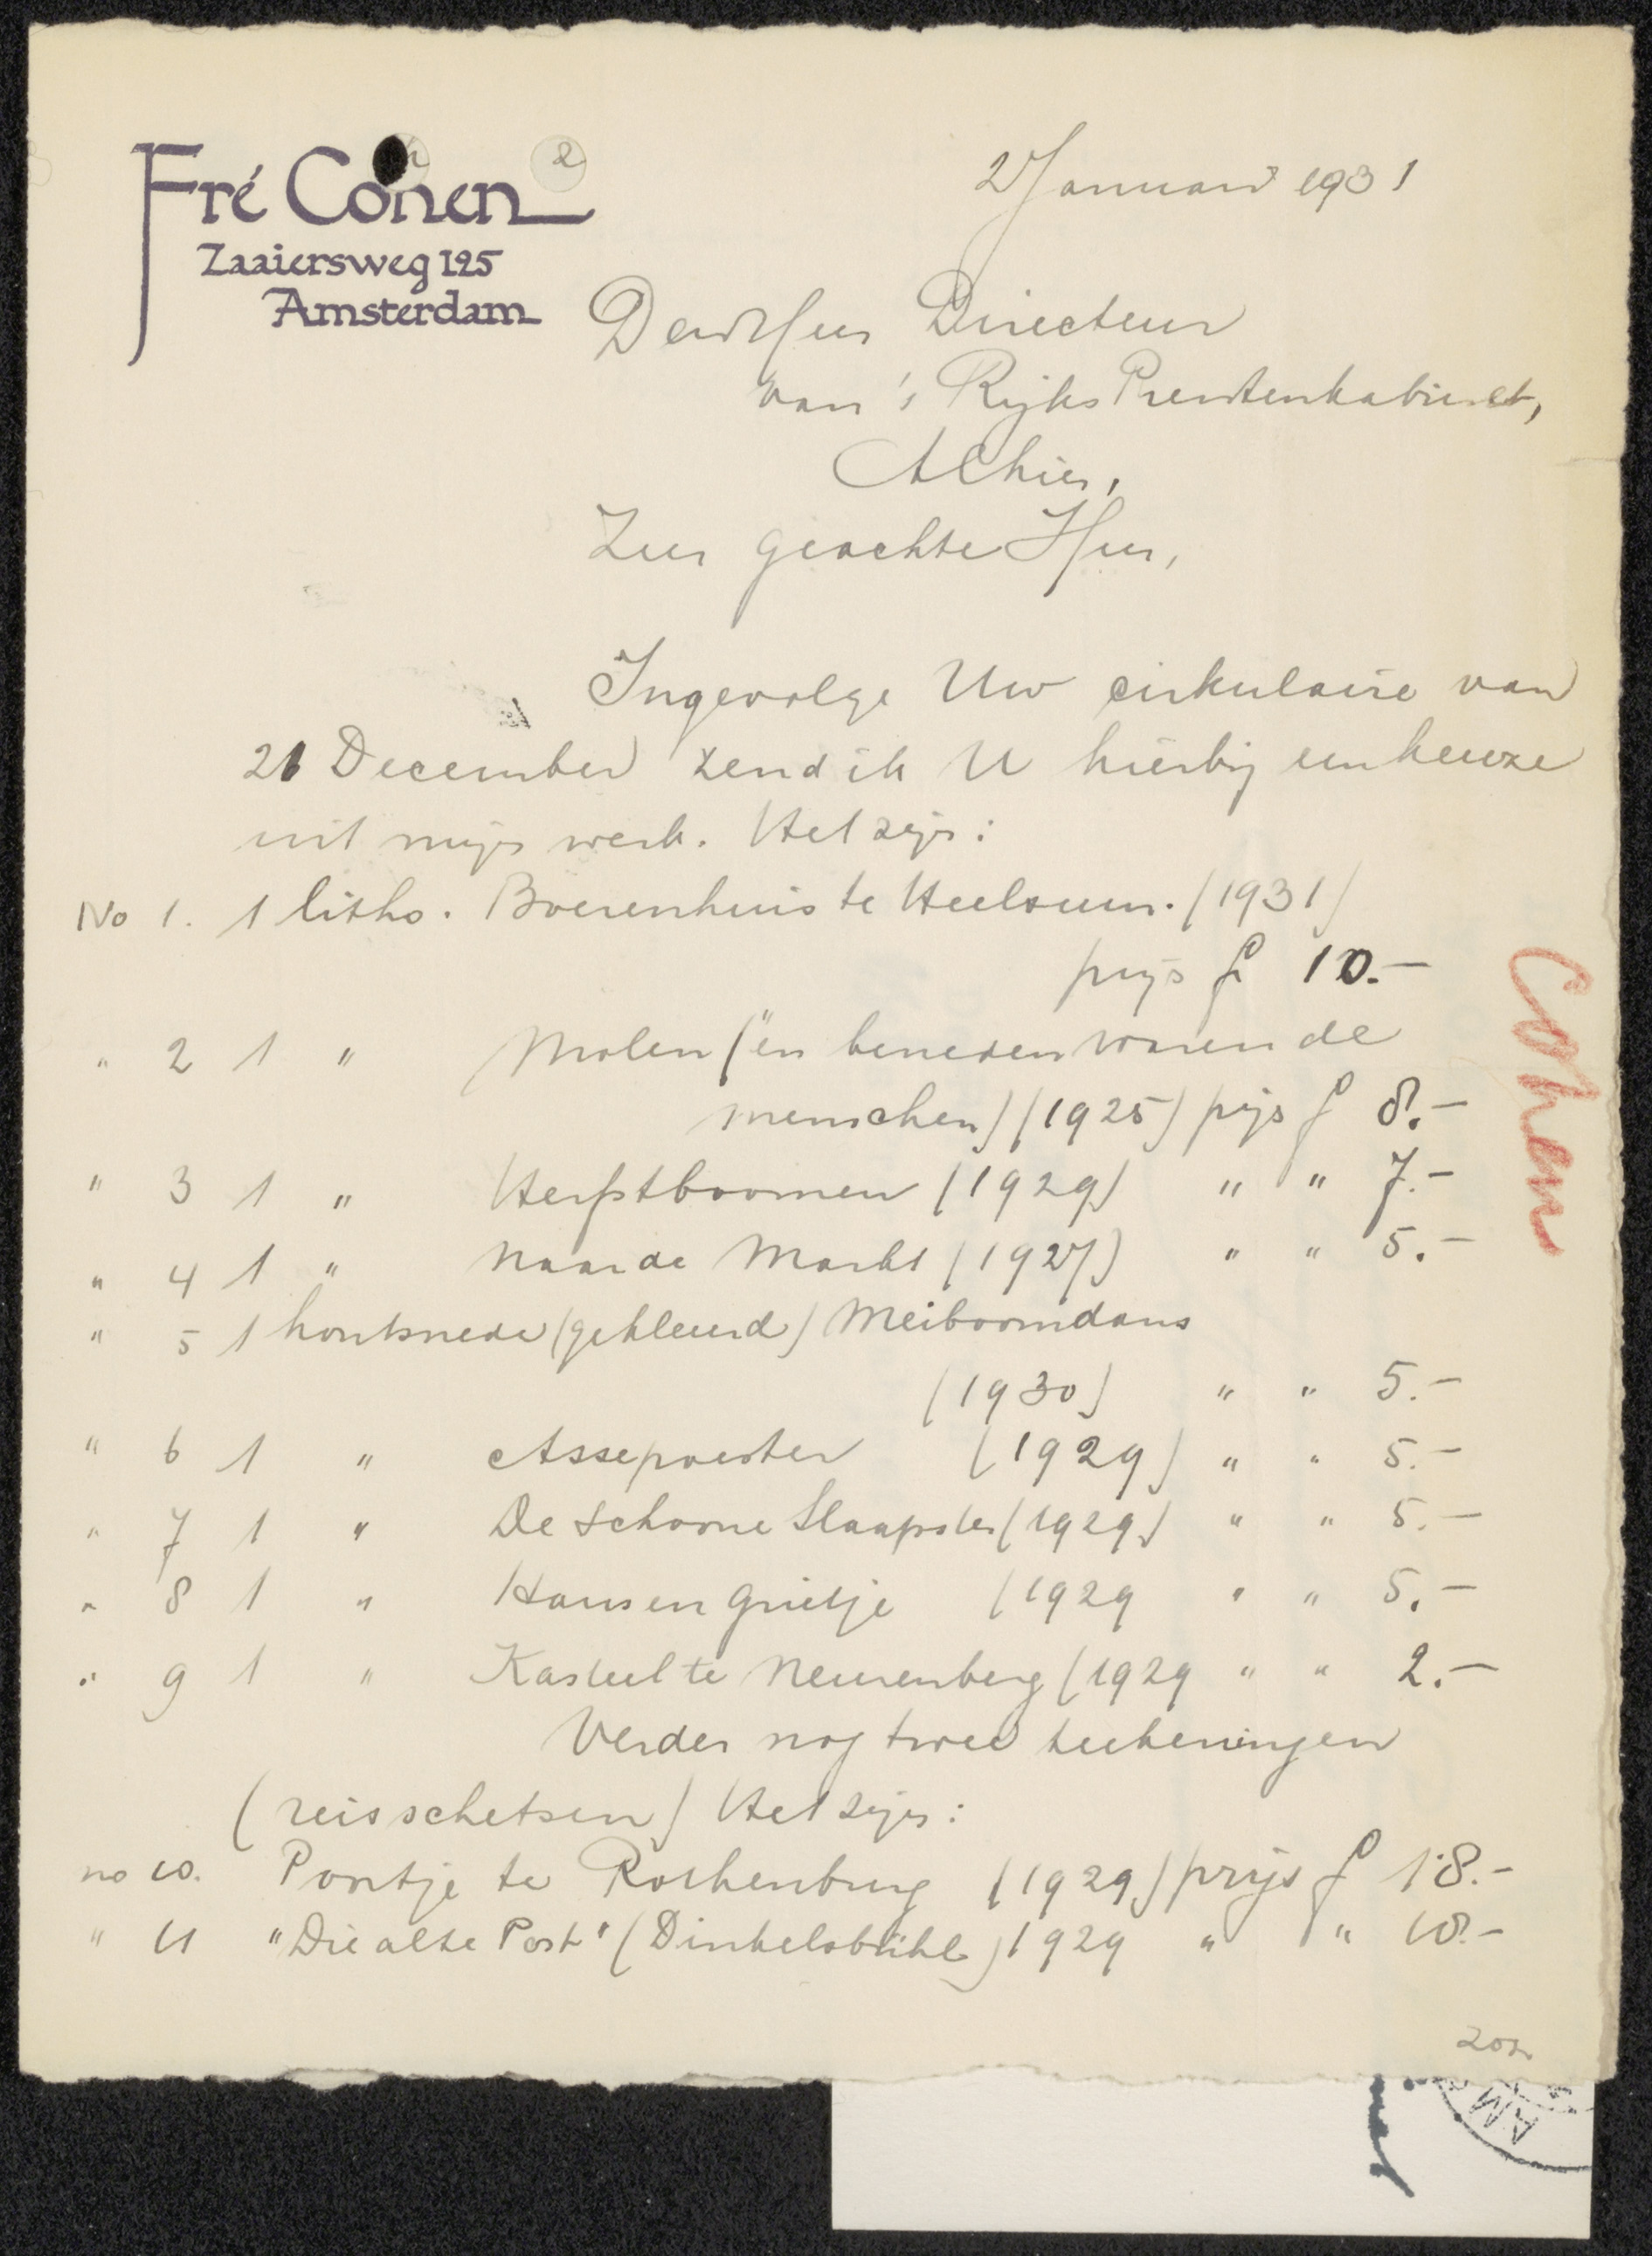 Fré Cohen
2
Zaaiersweg 125
Amsterdam
2 Januari 1931
Den Heer Directeur
van 's Rijks Prentenkabinet,
Alhier,
Zeer geachte Heer,
Ingevolge Uw cirkulaire van
21 December zend ik U hierbij een keuze
uit mijn werk. Het zijn:
No 1. 1 litho. Boerenhuis te Heelsum. (1931)
prijs f 10.-
" 2 1 " Molen ("en beneden waren de
menschen) (1925) prijs f 8.-
" 3 1 " Herfstboomen (1929) " " 7.-
" 4 1 " Naar de Markt (1927) " " 5.-
" 5 1 houtsnede (gekleurd) Meiboomdans
(1930) " " 5.-
" 6 1 " Assepoester (1929) " " 5.-
" 7 1 " De schoone Slaapster (1929) " " 5.-
" 8 1 " Hans en Grietje (1929 " " 5.-
" 9 1 " Kasteel te Neurenberg (1929 " " 2.-
Verder nog twee teekeningen
(reisschetsen) Het zijn:
no 10. Poortje te Rothenburg (1929) prijs f 18.-
" 11 "Die alte Post" (Dinkelsbühl) 1929 " " 18.-
Cohen
AM